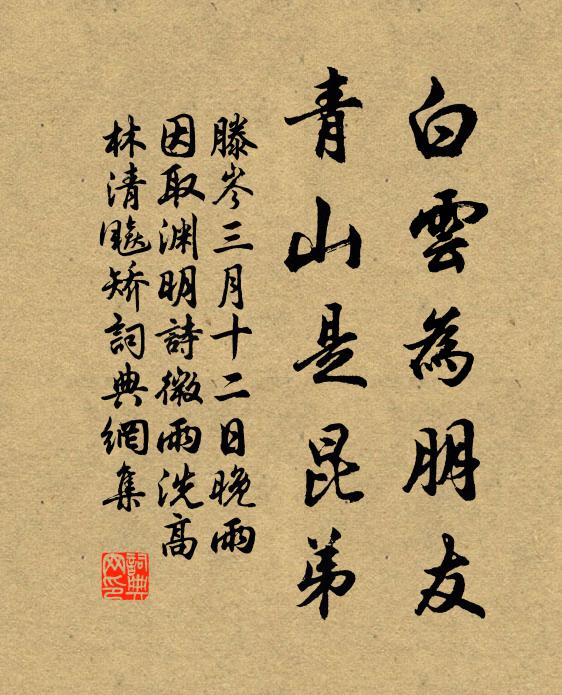 白雲為朋友
青山是昆弟
滕岑三月十二日晚雨
因取渊明詩微雨洗高
林清飈矫詞典網集
詞典
网印